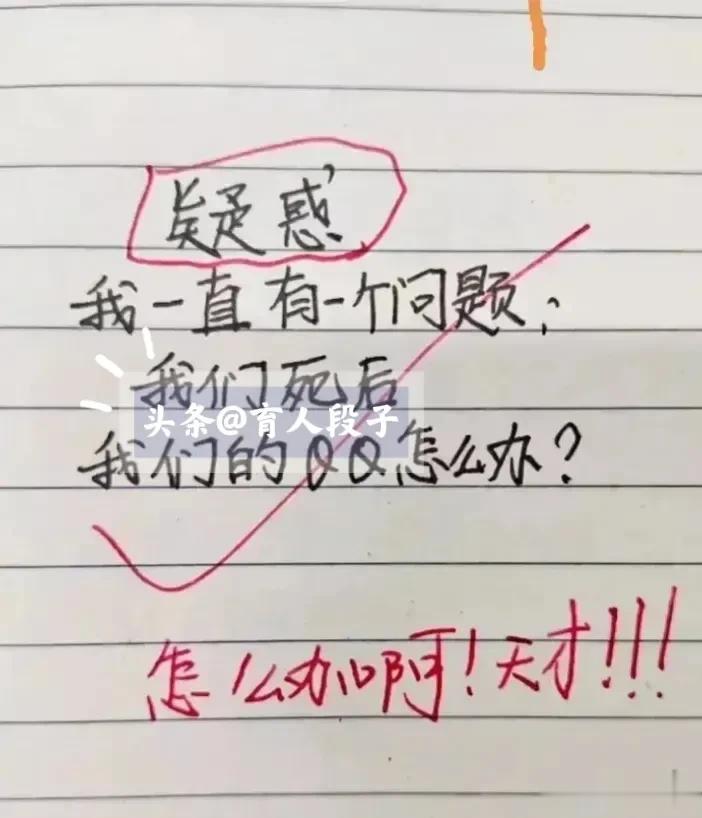 疑惑
我一直有一个问题:
我们死后
头条@育人段子
我们的QQ怎么办?
怎么办啊!天才!!!